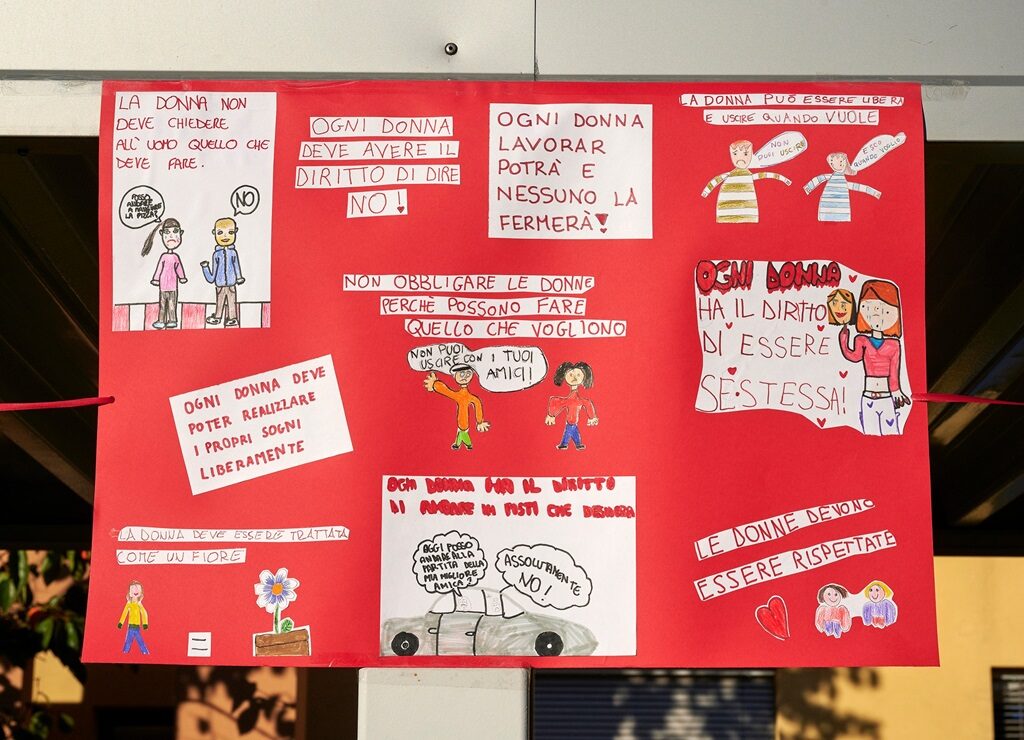 LA DONNA NON
DEVE CHIEDERE
ALL' UOMO QUELLO CHE
DEVE FARE.
POSSO
ANDARE
A MANGIARE
LA PIZZA?
NO
OGNI DONNA
DEVE AVERE IL
DIRITTO DI DIRE
NO!
OGNI DONNA
LAVORAR
POTRÀ E
NESSUNO LA
FERMERÀ!
LA DONNA PUÒ ESSERE LIBERA
E USCIRE QUANDO VUOLE
NON
PUOI USCIRE
ESCO
QUANDO VOGLIO
NON OBBLIGARE LE DONNE
PERCHÈ POSSONO FARE
QUELLO CHE VOGLIONO
NON PUOI
USCIRE CON I TUOI
AMICI!
OGNI DONNA
HA IL DIRITTO
DI ESSERE
SE STESSA!
OGNI DONNA DEVE
POTER REALIZZARE
I PROPRI SOGNI
LIBERAMENTE
LA DONNA DEVE ESSERE TRATTATA
COME UN FIORE
=
OGNI DONNA HA IL DIRITTO
DI ANDARE IN POSTI CHE DESIDERA
OGGI POSSO
ANDARE ALLA
PARTITA DELLA
MIA MIGLIORE
AMICA?
ASSOLUTAMENTE
NO!
LE DONNE DEVONO
ESSERE RISPETTATE